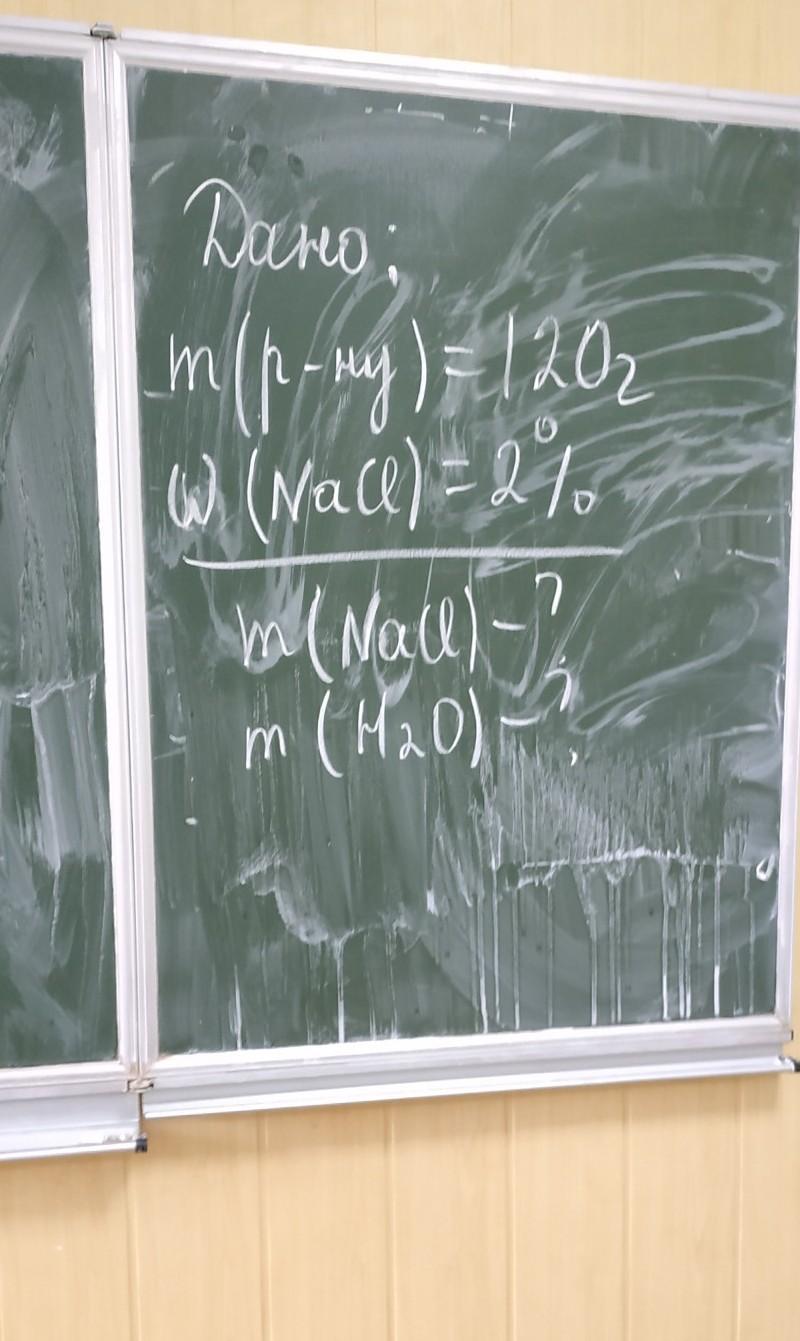 Дано:
m(р-ну) = 120г
ω (NaCl) = 2%
m(NaCl) - ?
m (H₂O) - ?